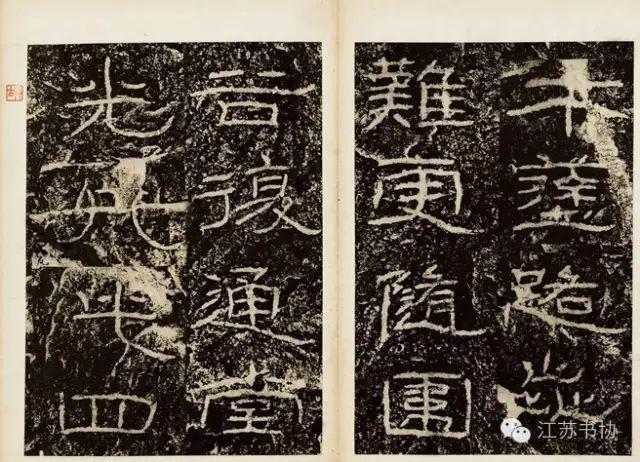 午塗路歰
難更隨圍
谷復通堂
光凡此四
江苏书协